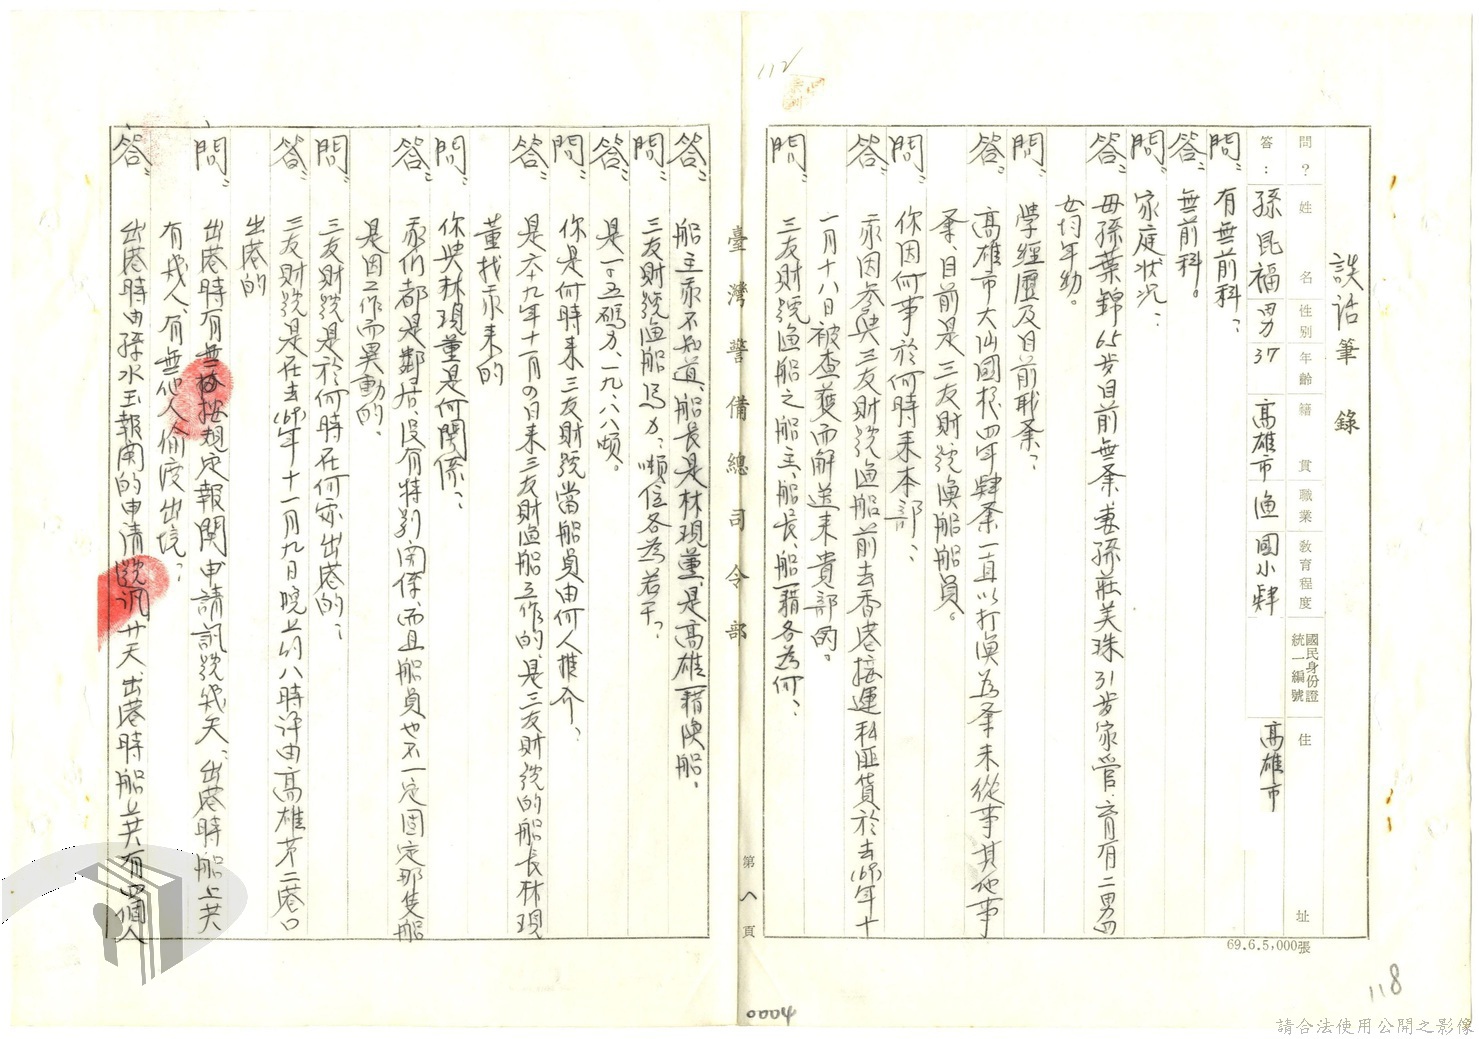 談話筆錄
問？姓名 性別 年齡 籍貫 職業 教育程度 國民身份證統一編號 住址
答：孫昆福 男 37 高雄市 漁 國小肄 高雄市
問：有無前科？
答：無前科。
問：家庭狀況？
答：母孫葉錦65歲目前無業、妻孫莊美珠31歲家管、育有二男四
女均年幼。
問：學經歷及目前職業？
答：高雄市大汕國校四年肄業一直以打漁為業未從事其他事
業、目前是三友財號漁船船員。
問：你因何事於何時來本部？
答：我因參與三友財號漁船前去香港接運私匪貨於去(68)年十
一月十八日被查獲而解送來貴部的。
問：三友財號漁船之船主、船長船籍各為何？
臺灣警備總司令部
第八頁
答：船主我不知道、船長是林現董、是高雄籍漁船。
問：三友財號漁船馬力、噸位各為若干？
答：是一一五碼力、一九.八八噸。
問：你是何時來三友財號當船員由何人推介？
答：是六十九年十一月四日來三友財漁船工作的、是三友財號的船長林現
董找我來的
問：你與林現董是何關係？
答：我們都是鄰居、沒有特別關係、而且船員也不一定固定那隻船
是因工作而異動的。
問：三友財號是於何時在何處出港的？
答：三友財號是在去(69)年十一月九日晚上約八時許由高雄第二港口
出港的
問：出港時有無按規定報關申請訊號幾天？出港時船上共
有幾人、有無他人偷渡出境？
答：出港時由孫水玉報關的申請號訊廿天、出港時船上共有四個人
69.6.5,000張
112
118
0004
請合法使用公開之影像